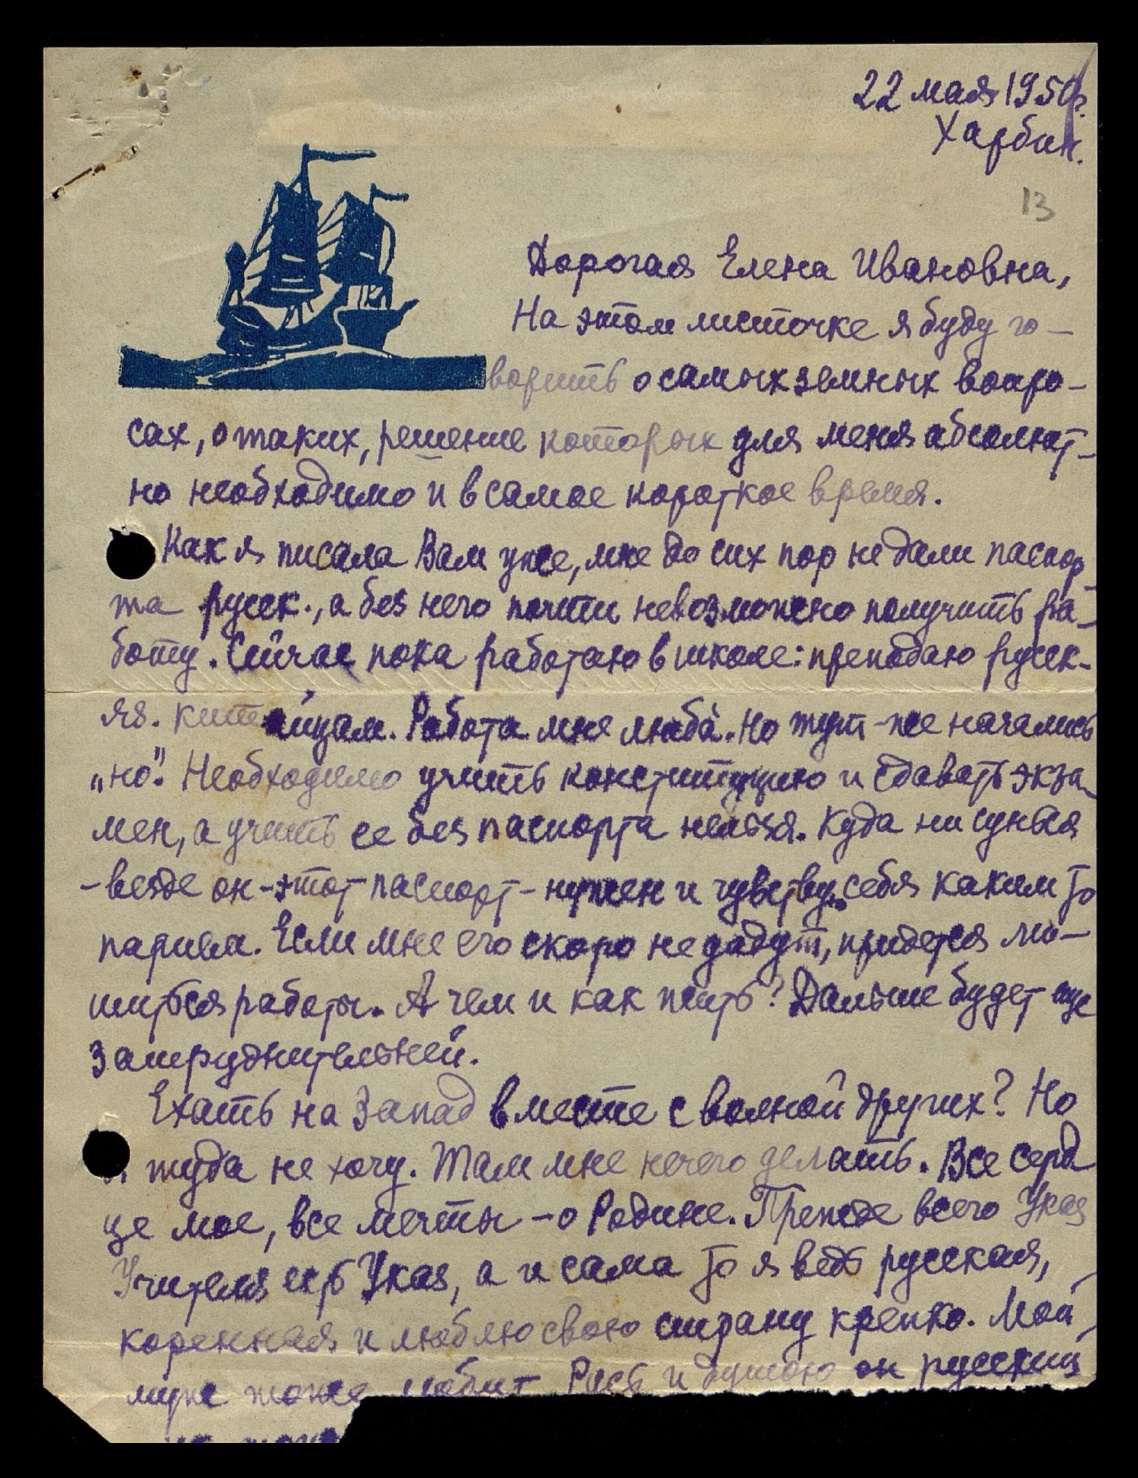 22 мая 1950г.
Харбин.
13
Дорогая Елена Ивановна,
На этом листочке я буду го-
ворить о самых земных вопро-
сах, о таких, решение которых для меня абсолют-
но необходимо и в самое короткое время.
Как я писала Вам уже, мне до сих пор не дали паспор-
та русск., а без него почти невозможно получить ра-
боту. Сейчас пока работаю в школе: преподаю русск.
яз. китайцам. Работа мне люба. Но тут-же начались
„но". Необходимо учить конституцию и сдавать экза-
мен, а учить ее без паспорта нельзя. Куда ни сунься
- везде он - этот паспорт - нужен и чувству. себя каким то
парием. Если мне его скоро не дадут, придется ли-
шиться работы. А чем и как жить? Дальше будет еще
затруднительней.
Ехать на Запад вместе с волной других? Но
я туда не хочу. Там мне нечего делать. Все серд
це мое, все мечты - о Родине. Прежде всего Указ
Учителя есть Указ, а и сама то я ведь русская,
коренная и люблю свою страну крепко. Мой
муж тоже любит Русь и душою он русский